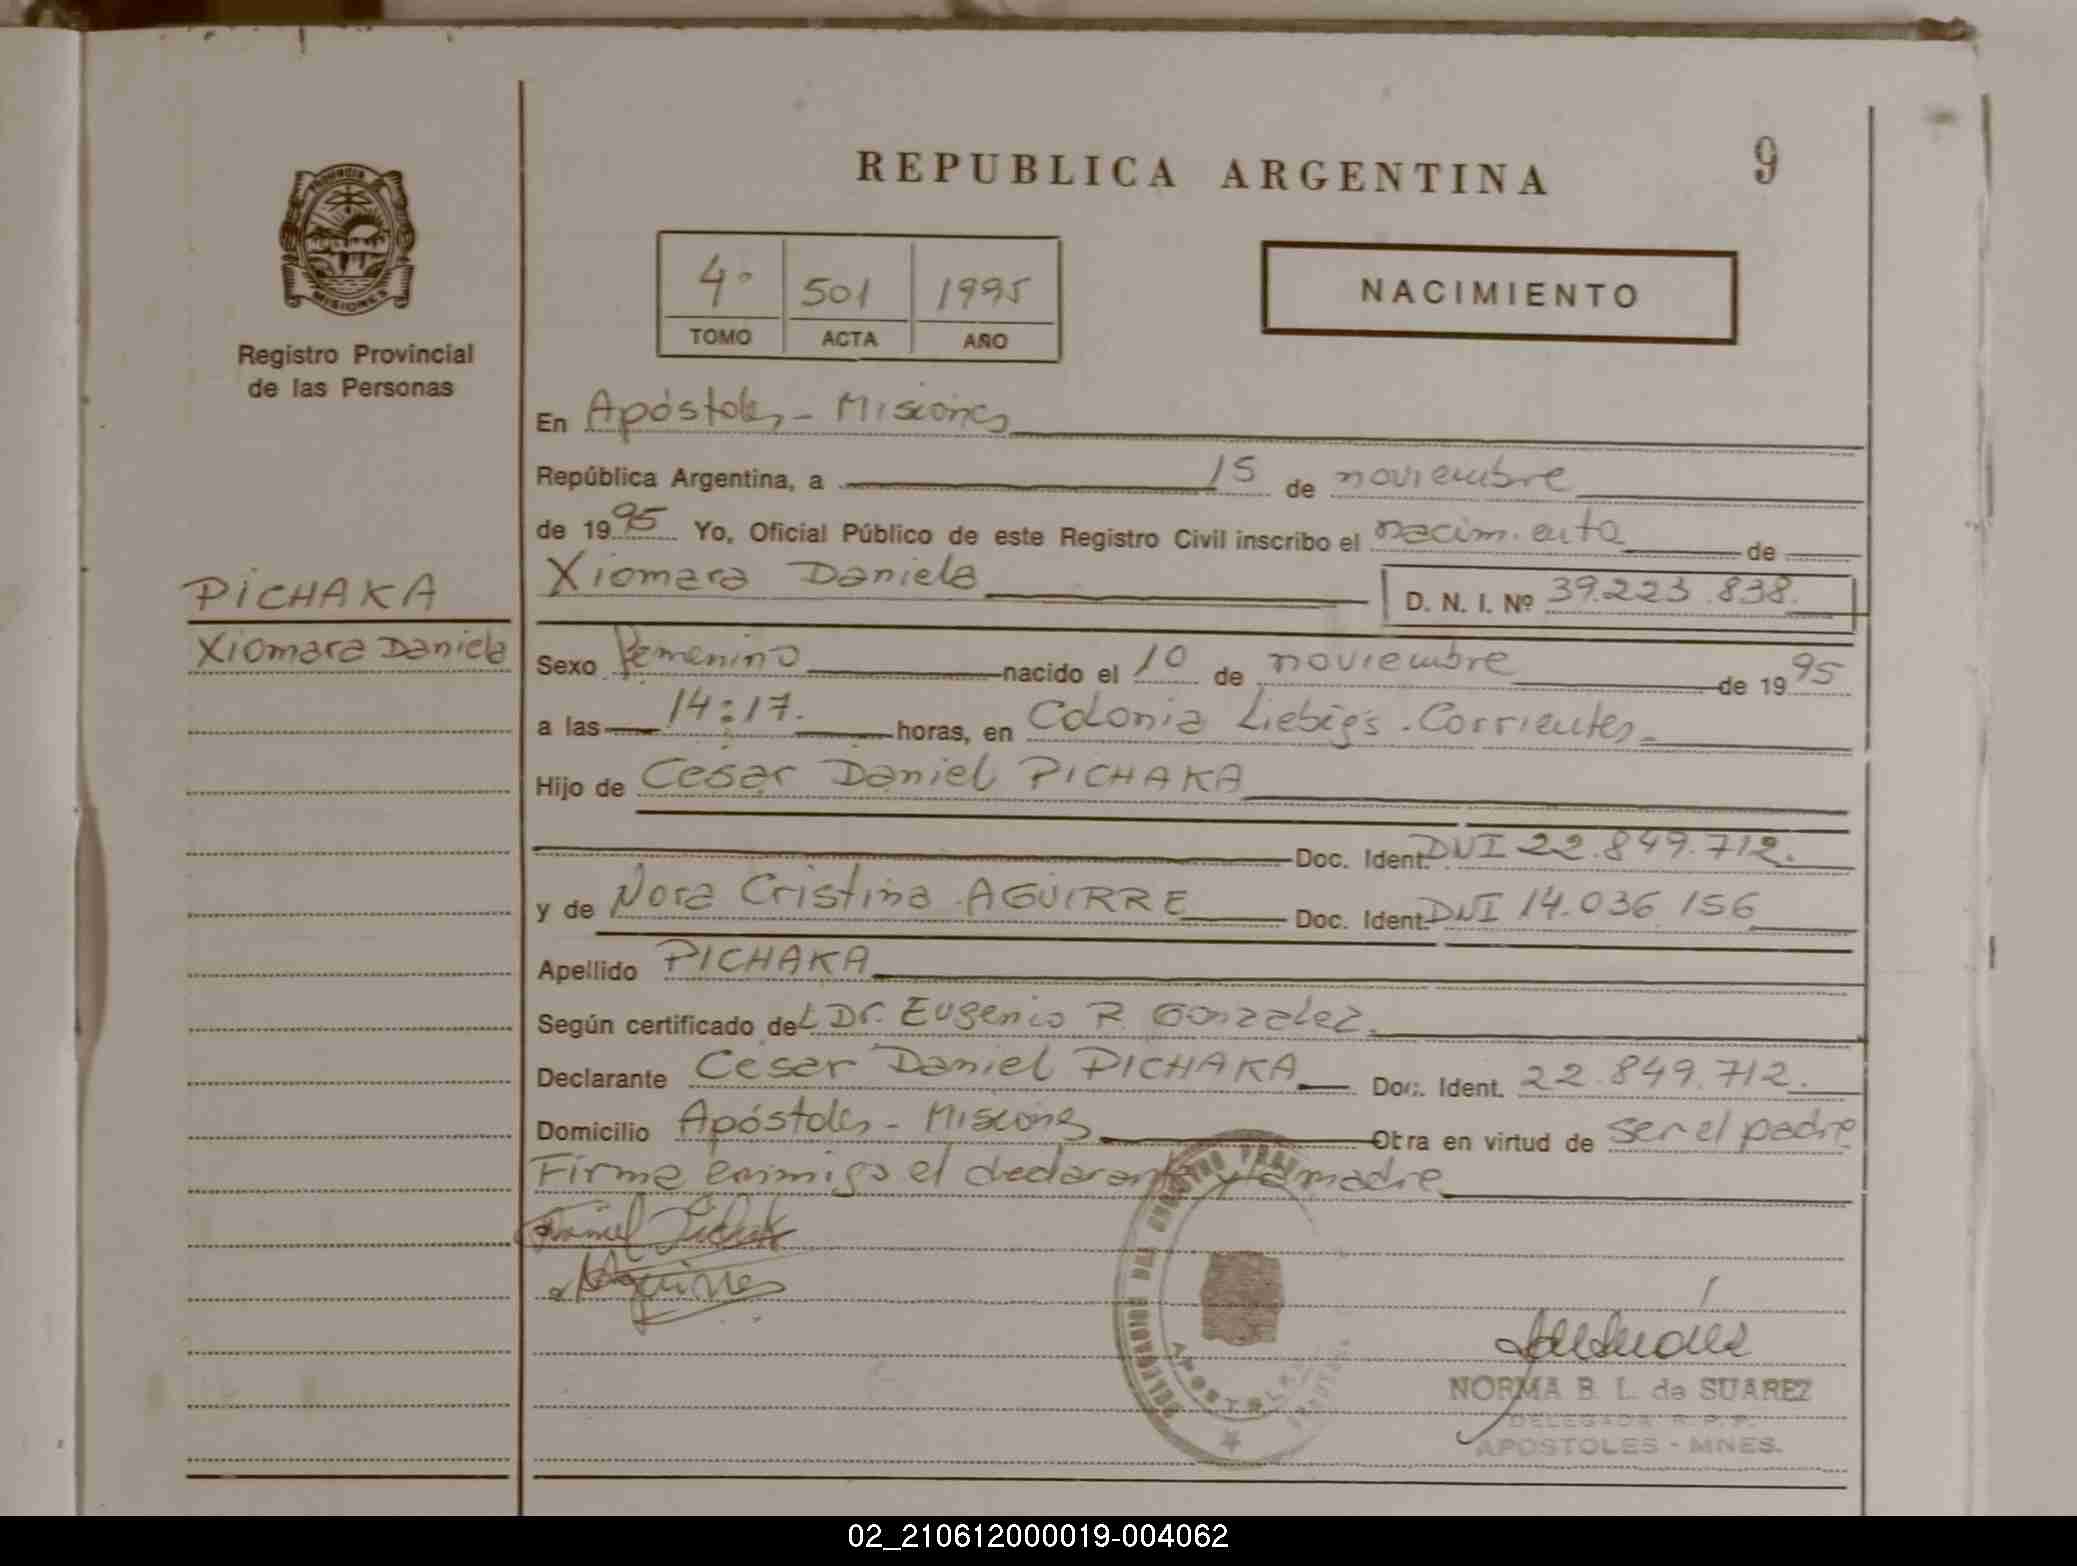 REPUBLICA ARGENTINA
9
PROVINCIA DE
MISIONES
Registro Provincial
de las Personas
4º 501 1995
TOMO ACTA AÑO
NACIMIENTO
En Apóstoles - Misiones
República Argentina, a 15 de noviembre
de 1995 Yo, Oficial Público de este Registro Civil inscribo el nacimiento de
PICHAKA
Xiomara Daniela
Xiomara Daniela D. N. I. Nº 39.223.838.
Sexo Femenino nacido el 10 de noviembre de 1995
a las 14:17. horas, en Colonia Liebig's - Corrientes.
Hijo de Cesar Daniel PICHAKA
Doc. Ident. DNI 22.849.712.
y de Nora Cristina AGUIRRE Doc. Ident. DNI 14.036.156
Apellido PICHAKA
Según certificado del Dr. Eugenio R. Gonzalez.
Declarante Cesar Daniel PICHAKA Doc. Ident. 22.849.712.
Domicilio Apóstoles - Misiones Obra en virtud de ser el padre
Firma conmigo el declarante y la madre
APOSTOLES
NORMA B. L. de SUAREZ
DELEGADA R. P. P.
APOSTOLES - MNES.
02_210612000019-004062